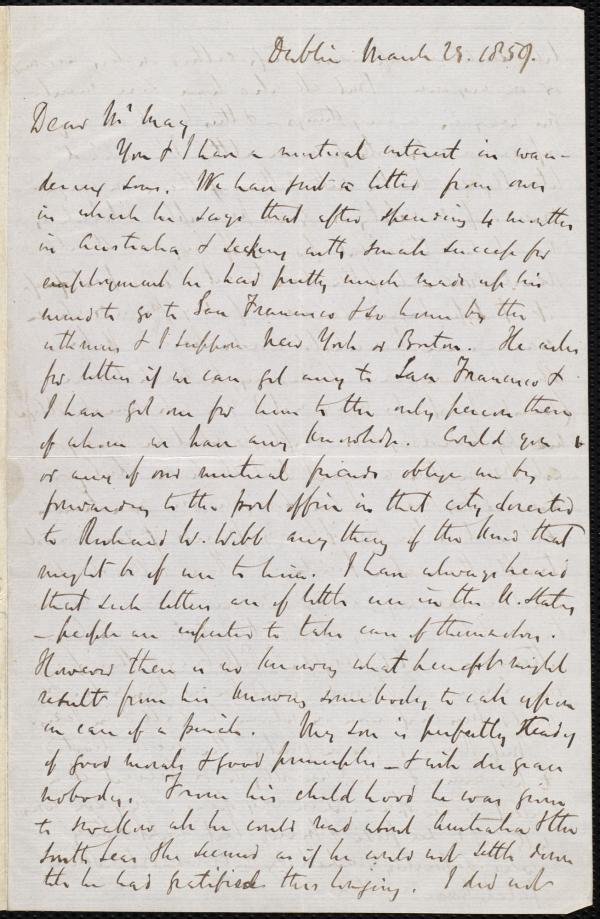 Dublin March 25. 1859.
Dear Mr May
You & I have a mutual interest in wan-
dering sons. We have just a letter from ours
in which he says that after spending 4 months
in Australia & seeking with small success for
employment he had pretty much made up his
mind to go to San Francisco & so home by the
isthmus & I suppose New York or Boston. He asks
for letters if we can get any to San Francisco &
I have got one for him to the only person there
of whom we have any knowledge. Could you
or any of our mutual friends oblige me by
forwarding to the post office in that city directed
to Richard W. Webb any thing of the kind that
might be of use to him. I have always heard
that such letters are of little use in the U. States
– people are expected to take care of themselves.
However there is no knowing what benefit might
result from his knowing somebody to call upon
in case of a pinch. My son is perfectly steady
of good morals & good principles – & will disgrace
nobody. From his childhood he was given
to swallow all he could read about Australia & the
South Seas & he seemed as if he could not settle down
till he had gratified this longing. I did not